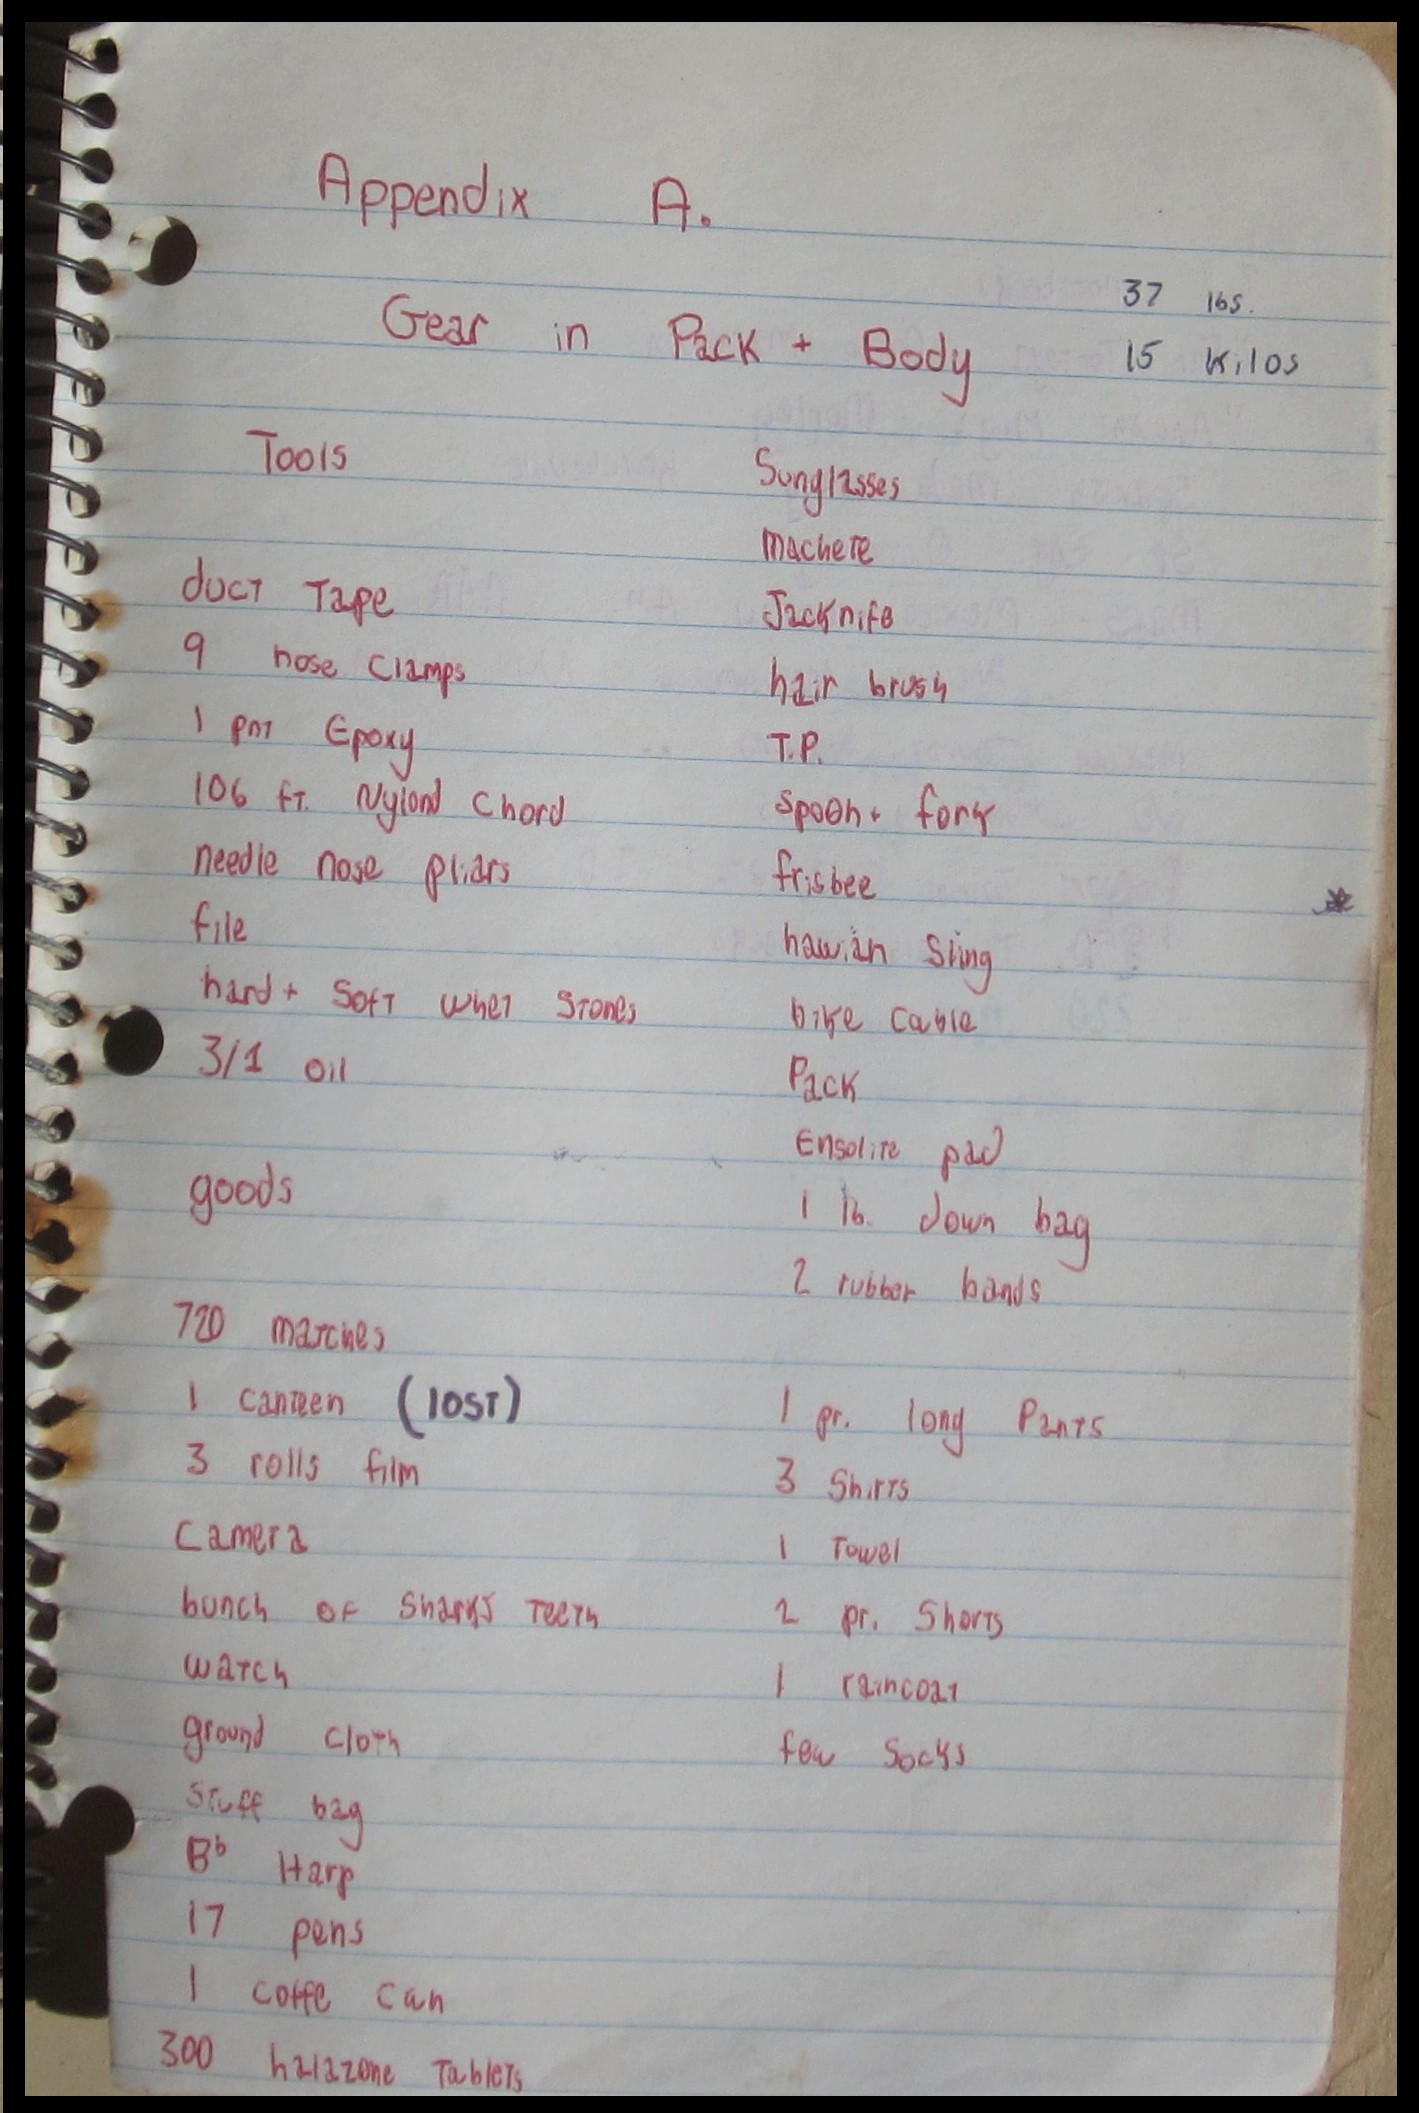 Appendix A.
37 lbs.
Gear in Pack + Body
15 Kilos
Tools
duct Tape
9 hose Clamps
1 pnt Epoxy
106 ft. Nylond Chord
needle nose pliars
file
hard + Soft Whet Stones
3/1 oil
goods
720 matches
1 Canteen (lost)
3 rolls film
Camera
bunch of Sharks Teeth
watch
ground Cloth
Stuff bag
Bb Harp
17 pens
1 coffe can
300 halazone Tablets
Sunglasses
Machete
Jacknife
hair brush
T.P.
Spoon + fork
frisbee
hawiin Sling
bike Cable
Pack
Ensolite pad
1 lb. down bag
2 rubber bands
1 pr. long Pants
3 Shirts
1 Towel
2 pr. Shorts
1 raincoat
few Socks